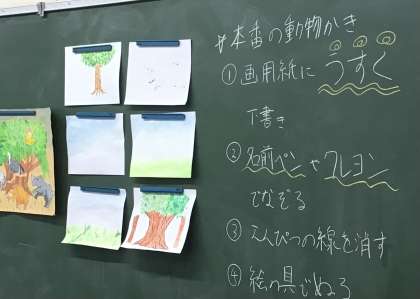 #本番の動物かき
①画用紙にうすく
下書き
②名前ペンやクレヨン
でなぞる
③えんぴつの線を消す
④絵の具でぬる